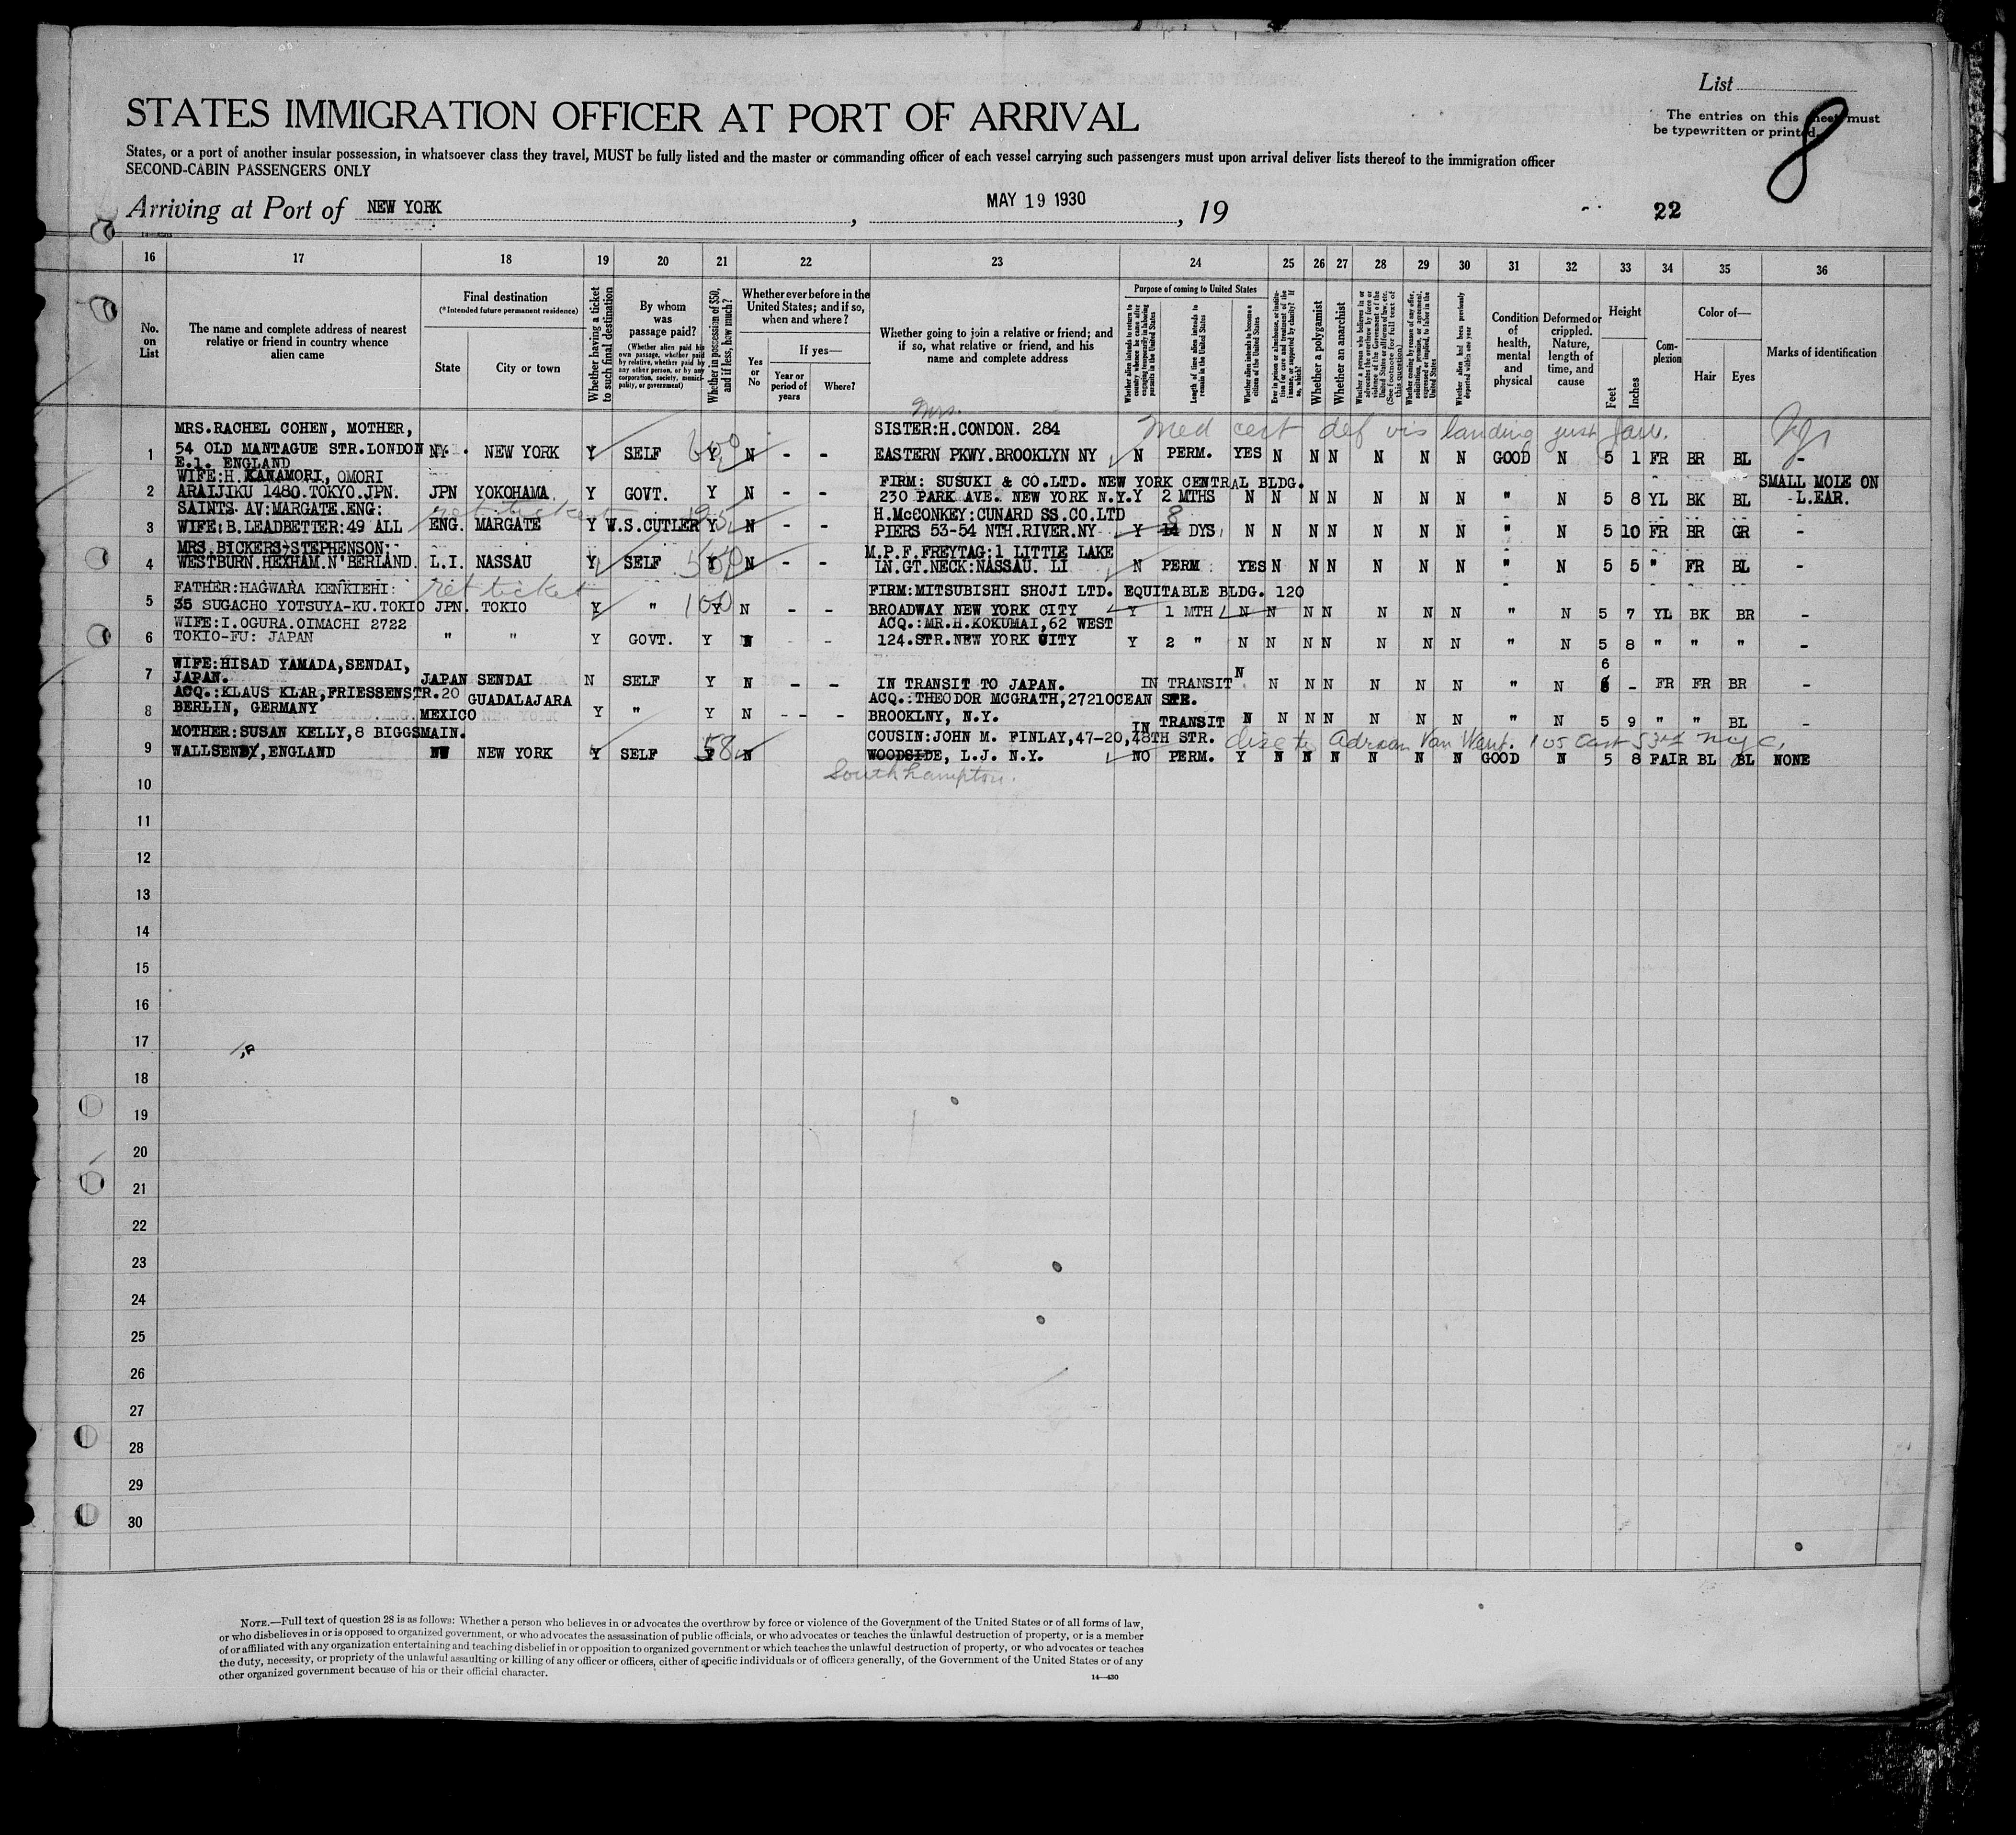 List
STATES IMMIGRATION OFFICER AT PORT OF ARRIVAL
The entries on this sheet must
be typewritten or printed.
8
States, or a port of another insular possession, in whatsoever class they travel, MUST be fully listed and the master or commanding officer of each vessel carrying such passengers must upon arrival deliver lists thereof to the immigration officer
SECOND-CABIN PASSENGERS ONLY
Arriving at Port of NEW YORK, MAY 19 1930, 19
22
16 17 18 19 20 21 22 23 24 25 26 27 28 29 30 31 32 33 34 35 36
No. on List
The name and complete address of nearest relative or friend in country whence alien came
Final destination
(*Intended future permanent residence)
State
City or town
Whether having a ticket to such final destination
By whom was passage paid?
(Whether alien paid his own passage, whether paid by relative, whether paid by any other person, or by any corporation, society, municipality, or government)
Whether in possession of $50, and if less, how much?
Whether ever before in the United States; and if so, when and where?
Yes or No
If yes—
Year or period of years
Where?
Whether going to join a relative or friend; and if so, what relative or friend, and his name and complete address
Purpose of coming to United States
Whether alien intends to return to country whence he came after engaging temporarily in laboring pursuits in the United States
Length of time alien intends to remain in the United States
Whether alien intends to become a citizen of the United States
Ever in prison or almshouse, or institution for care and treatment of the insane, or supported by charity? If so, which?
Whether a polygamist
Whether an anarchist
Whether a person who believes in or advocates the overthrow by force or violence of the Government of the United States or all forms of law, etc. (See footnote for full text of this question)
Whether coming by reason of any offer, solicitation, promise, or agreement, expressed or implied, to labor in the United States
Whether alien had been previously deported within one year
Condition of health, mental and physical
Deformed or crippled. Nature, length of time, and cause
Height
Feet
Inches
Complexion
Color of—
Hair
Eyes
Marks of identification
Mrs.
MRS.RACHEL COHEN, MOTHER, SISTER:H.CONDON. 284 Med cert def vis landing just
1 54 OLD MANTAGUE STR.LONDON NY. NEW YORK Y SELF Y N - - EASTERN PKWY.BROOKLYN NY N PERM. YES N N N N N N GOOD N 5 1 FR BR BL -
E.1. ENGLAND
WIFE:H.KANAMORI, OMORI FIRM: SUSUKI & CO.LTD. NEW YORK CENTRAL BLDG. SMALL MOLE ON
2 ARAIJIKU 1480.TOKYO.JPN. JPN YOKOHAMA. Y GOVT. Y N - - 230 PARK AVE. NEW YORK N.Y. Y 2 MTHS N N N N N N N " N 5 8 YL BK BL L.EAR.
SAINTS. AV:MARGATE.ENG: ret ticket H.McCONKEY:CUNARD SS.CO.LTD 8
3 WIFE:B.LEADBETTER:49 ALL ENG. MARGATE Y W.S.CUTLER Y N - - PIERS 53-54 NTH.RIVER.NY Y 14 DYS N N N N N N N " N 5 10 FR BR GR -
MRS.BICKERS-STEPHENSON: M.P.F.FREYTAG:1 LITTLE LAKE
4 WESTBURN.HEXHAM.N'BERLAND. L.I. NASSAU Y SELF Y N - - LN.GT.NECK:NASSAU. LI N PERM YES N N N N N N " N 5 5 " FR BL -
FATHER:HAGWARA KENKIEHI: ret ticket FIRM:MITSUBISHI SHOJI LTD. EQUITABLE BLDG. 120
5 35 SUGACHO YOTSUYA-KU.TOKIO JPN. TOKIO Y " 100 Y N - - BROADWAY NEW YORK CITY Y 1 MTH N N N N N N N " N 5 7 YL BK BR -
WIFE:I.OGURA.OIMACHI 2722 ACQ.:MR.H.KOKUMAI,62 WEST
6 TOKIO-FU: JAPAN " " Y GOVT. Y N - 124.STR.NEW YORK CITY Y 2 " N N N N N N N " N 5 8 " " " -
WIFE:HISAD YAMADA,SENDAI, N 6
7 JAPAN. JAPAN SENDAI N SELF Y N - - IN TRANSIT TO JAPAN. IN TRANSIT N N N N N N " N - FR FR BR -
ACQ.:KLAUS KLAR,FRIESSENSTR.20 GUADALAJARA ACQ.:THEODOR MCGRATH,2721OCEAN STR.
8 BERLIN, GERMANY MEXICO Y " Y N - - - BROOKLNY, N.Y. IN TRANSIT N N N N N N N " N 5 9 " " BL -
MOTHER:SUSAN KELLY,8 BIGGSMAIN. COUSIN:JOHN M. FINLAY,47-20,48TH STR. Adrian Van Went. 105 East 53rd NYC,
9 WALLSEND,ENGLAND NEW YORK Y SELF 58 N WOODSIDE, L.J. N.Y. NO PERM. Y N N N N N N GOOD N 5 8 FAIR BL BL NONE
Southhampton.
10
11
12
13
14
15
16
17
18
19
20
21
22
23
24
25
26
27
28
29
30
NOTE.—Full text of question 28 is as follows: Whether a person who believes in or advocates the overthrow by force or violence of the Government of the United States or of all forms of law,
or who disbelieves in or is opposed to organized government, or who advocates the assassination of public officials, or who advocates or teaches the unlawful destruction of property, or is a member
of or affiliated with any organization entertaining and teaching disbelief in or opposition to organized government or which teaches the unlawful destruction of property, or who advocates or teaches
the duty, necessity, or propriety of the unlawful assaulting or killing of any officer or officers, either of specific individuals or of officers generally, of the Government of the United States or of any
other organized government because of his or their official character.
14—430